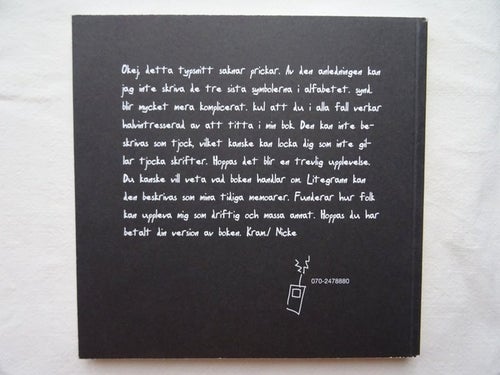 Okej, detta typsnitt saknar prickar. Av den anledningen kan
jag inte skriva de tre sista symbolerna i alfabetet. synd.
blir mycket mera komplicerat. kul att du i alla fall verkar
halvintresserad av att titta i min bok. Den kan inte be-
skrivas som tjock, vilket kanske kan locka dig som inte gil-
lar tjocka skrifter. Hoppas det blir en trevlig upplevelse.
Du kanske vill veta vad boken handlar om. Litegrann kan
den beskrivas som mina tidiga memoarer. Funderar hur folk
kan uppleva mig som driftig och massa annat. Hoppas du har
betalt din version av boken. Kram/ Nicke
070-2478880